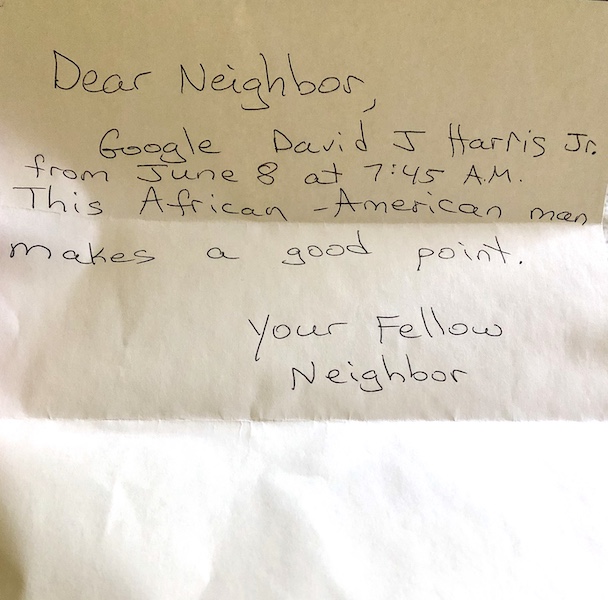 Dear Neighbor,
Google David J Harris Jr.
from June 8 at 7:45 A.M.
This African-American man
makes a good point.
Your Fellow
Neighbor